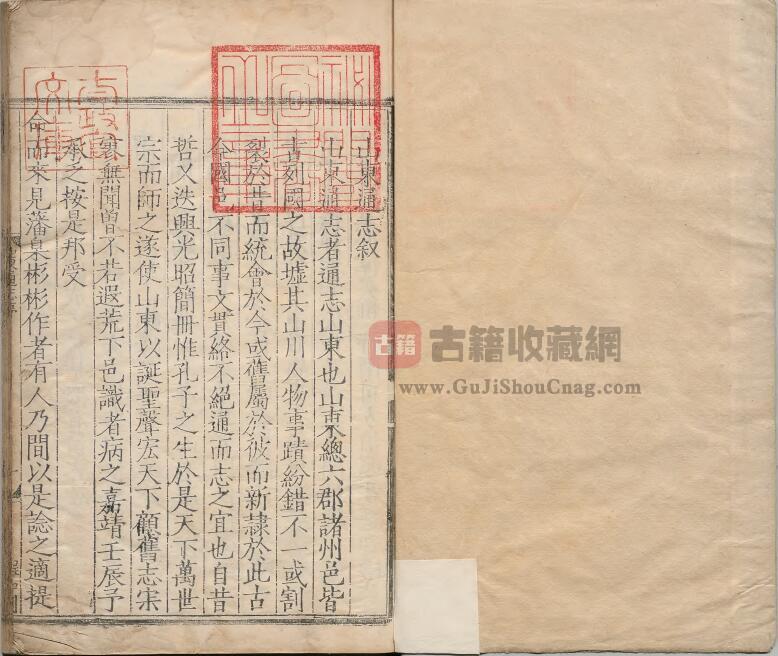 山東通志叙
山東通志者通志山東也山東總六郡諸州邑皆
書列國之故墟其山川人物事蹟紛錯不一或割
裂於昔而統會於今或舊屬於彼而新隸於此古
今國邑不同事文貫絡不絕通而志之宜也自昔
哲又迭興光昭簡冊惟孔子之生於是天下萬世
宗而師之遂使山東以誕聖聲宏天下顧舊志宋
襄無聞曾不若遐荒下邑識者病之嘉靖壬辰予
承乏按是邦受
命而來見藩臬彬彬作者有人乃間以是諗之適提
古籍
古籍收藏網
www.GuJiShouCnag.com